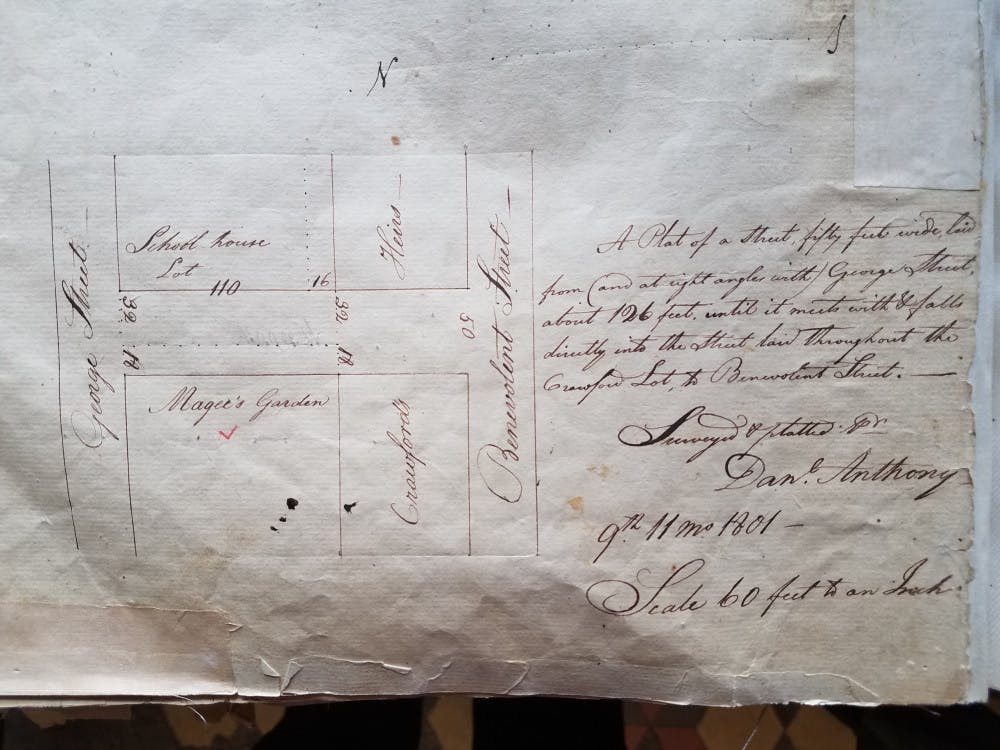 N
S
George Street
School house
Lot
110
16
32
18
32
18
Heirs
50
Benevolent Street
Magee's Garden
Crawford's
A Plat of a Street, fifty feet wide, laid
from (and at right angles with) George Street,
about 126 feet, until it meets with & falls
directly into the Street laid throughout the
Crawford Lot, to Benevolent Street.
Surveyed & platted pr
Danl. Anthony
9th 11 mo 1801
Scale 60 feet to an Inch.